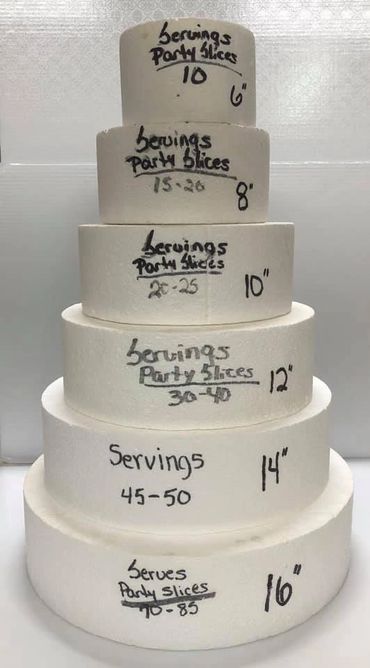 Servings
Party Slices
10
6"
Servings
Party Slices
15-20
8"
Servings
Party Slices
20-25
10"
Servings
Party Slices
30-40
12"
Servings
45-50
14"
Serves
Party slices
70-85
16"